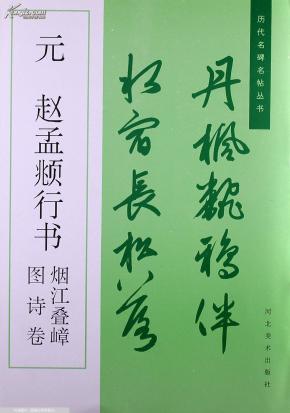 历代名碑名帖丛书
元 赵孟頫行书
烟江叠嶂
图诗卷
丹枫翻鸦伴
水宿长松落
河北美术出版社